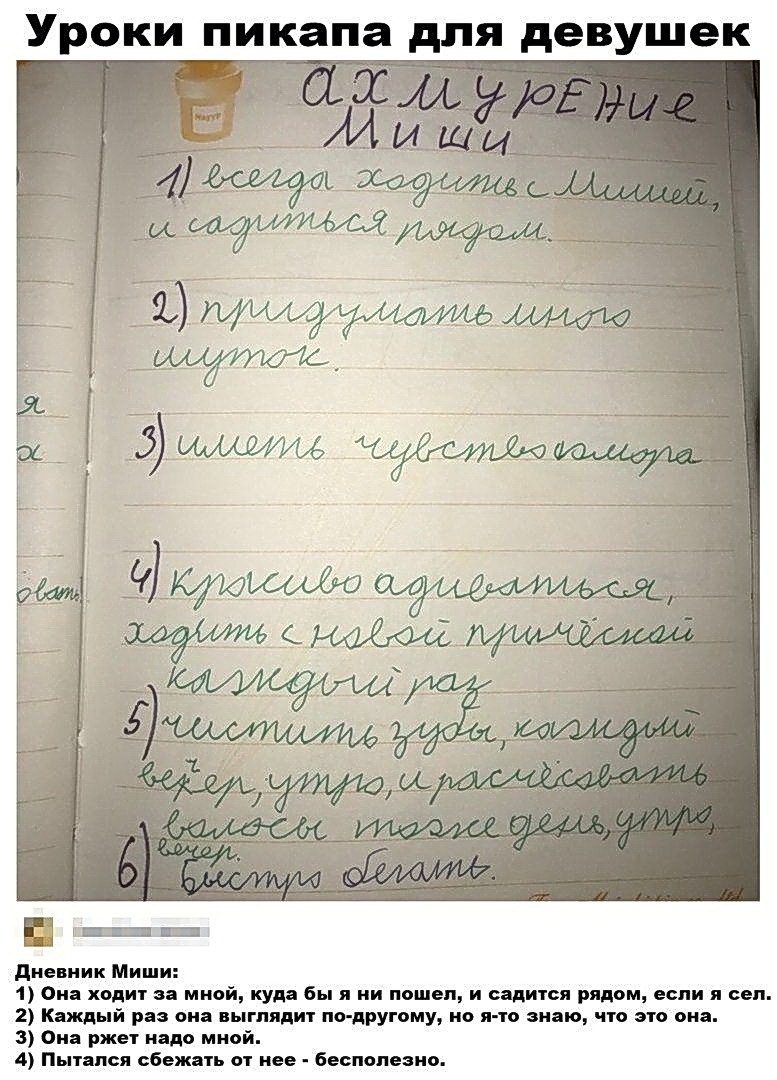 Уроки пикапа для девушек
йогурт
ахмурЕние
Миши
1) всегда ходить с Мишей,
и садиться рядом.
2) придумать много
шуток.
3) иметь чувство юмора
я
х
4) красиво адиваться,
овать
ходить с новой причёской
каждый раз
5) чистить зубы, каждый
вечер, утро, и расчёсовать
волосы тоже день, утро,
вечер.
6) Быстро бегать.
Дневник Миши:
1) Она ходит за мной, куда бы я ни пошел, и садится рядом, если я сел.
2) Каждый раз она выглядит по-другому, но я-то знаю, что это она.
3) Она ржет надо мной.
4) Пытался сбежать от нее - бесполезно.